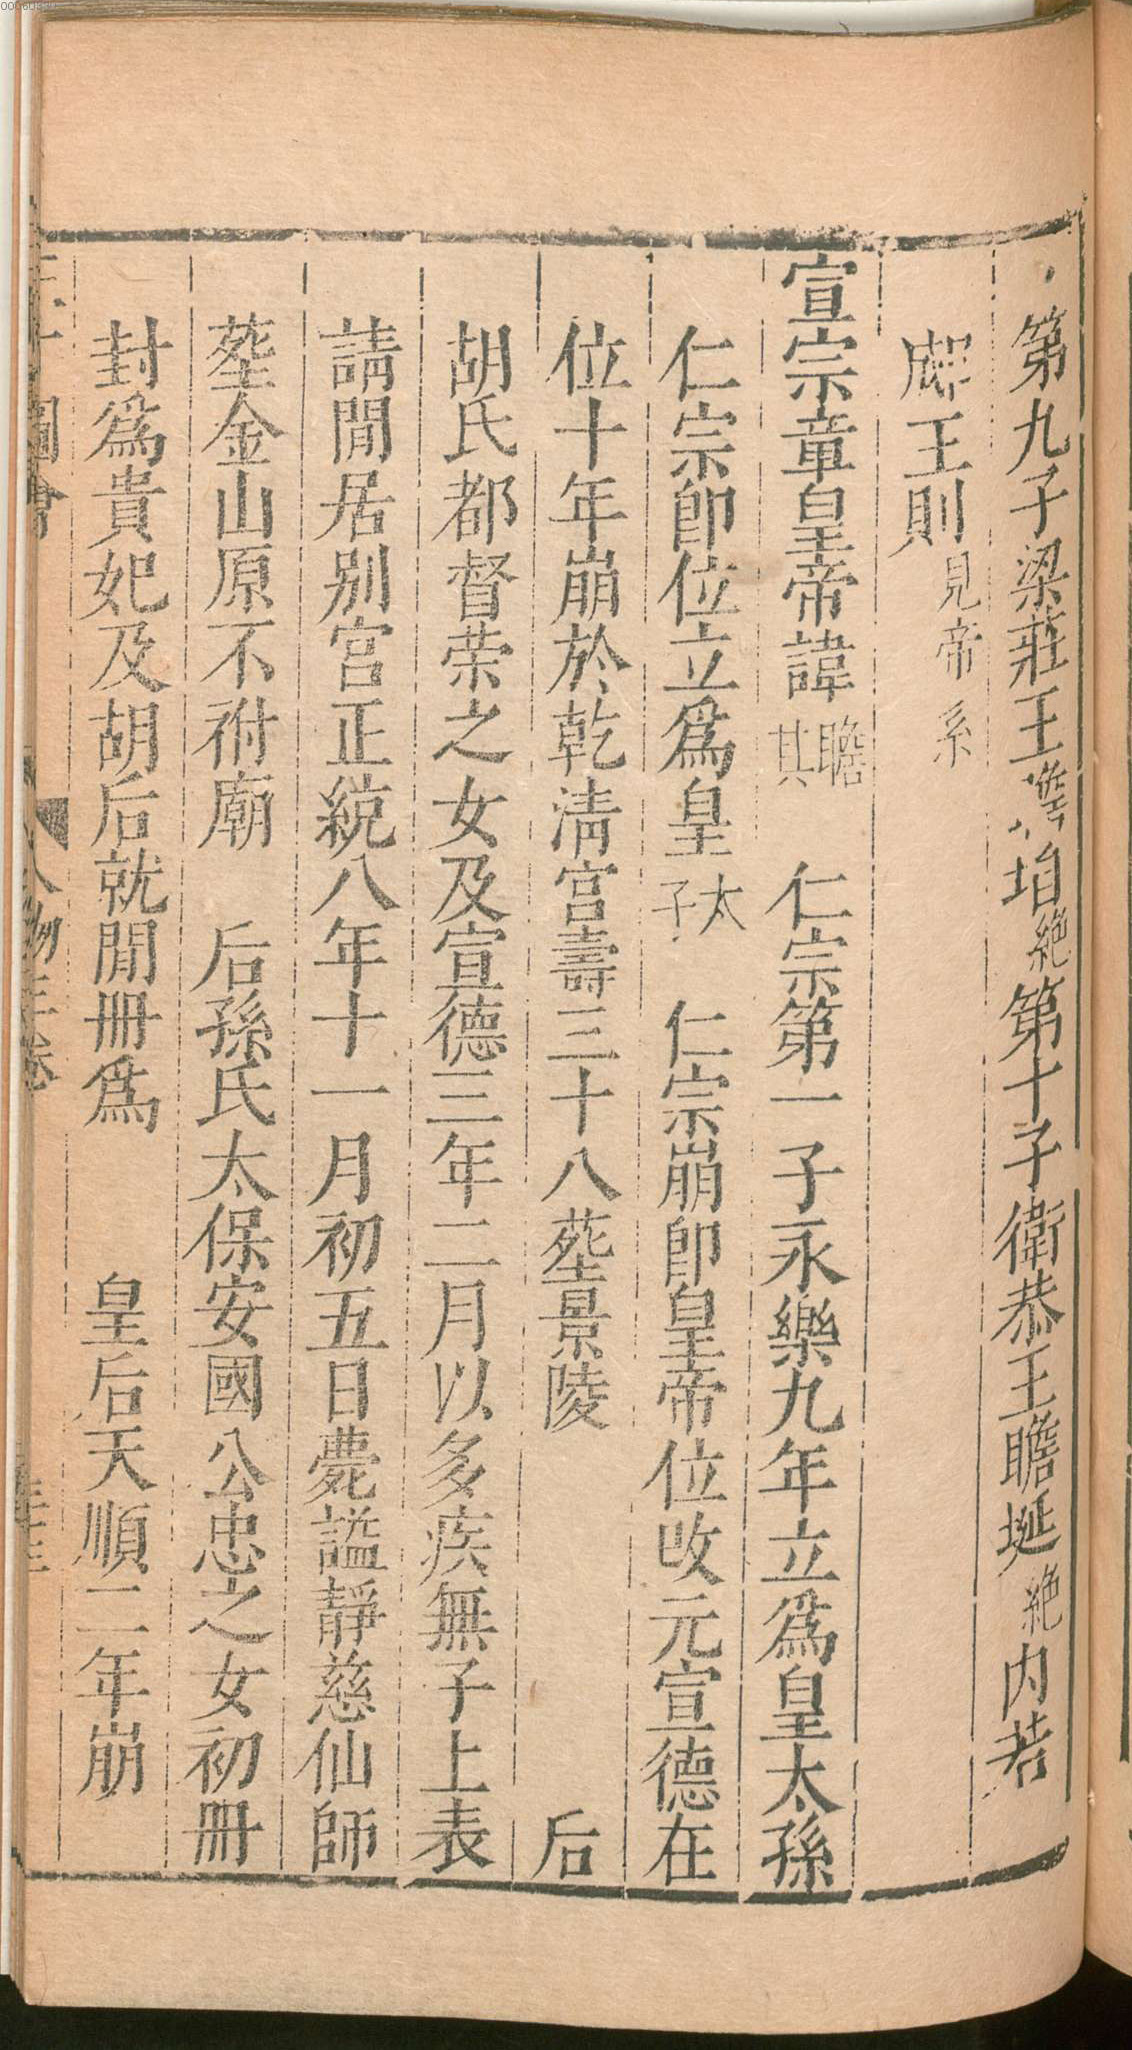 第九子梁莊王瞻垍絶第十子衛恭王瞻埏絶内若
郕王則見帝系
宣宗章皇帝諱瞻其 仁宗第一子永樂九年立爲皇太孫
仁宗卽位立爲皇太子 仁宗崩卽皇帝位改元宣德在
位十年崩於乾淸宮壽三十八塟景陵 后
胡氏都督荣之女及宣德三年二月以多疾無子上表
請閒居别宮正統八年十一月初五日薨謚靜慈仙師
塟金山原不祔廟 后孫氏太保安國公忠之女初冊
封爲貴妃及胡后就閒冊爲 皇后天順二年崩
圖會 人物三卷